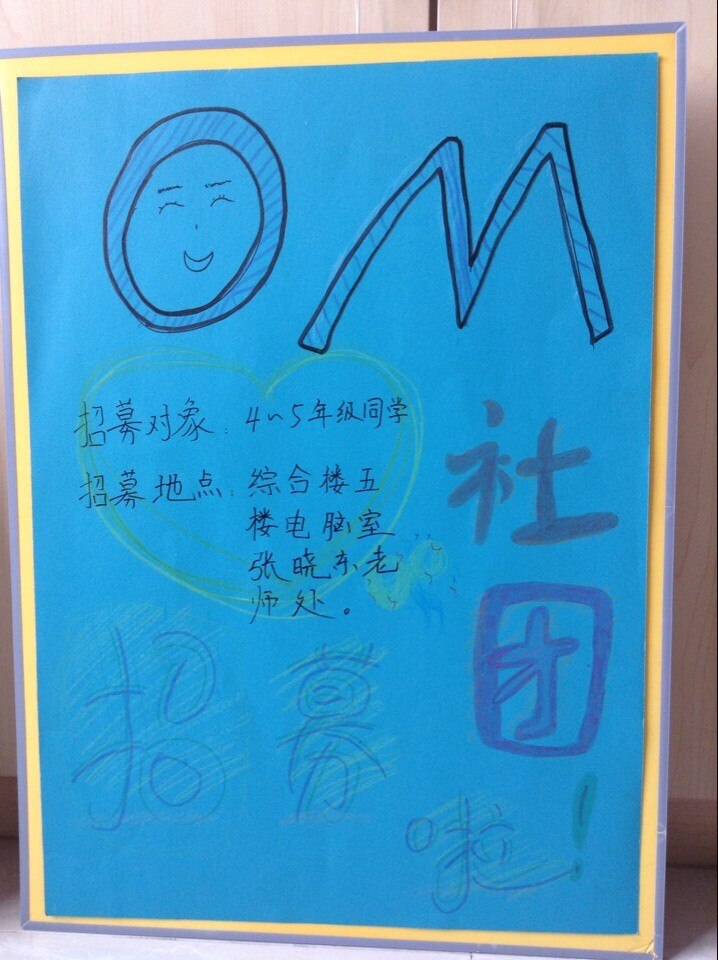 OM
招募对象：4~5年级同学
招募地点：综合楼五
楼电脑室
张晓东老
师处。
社
团
招募
啦！